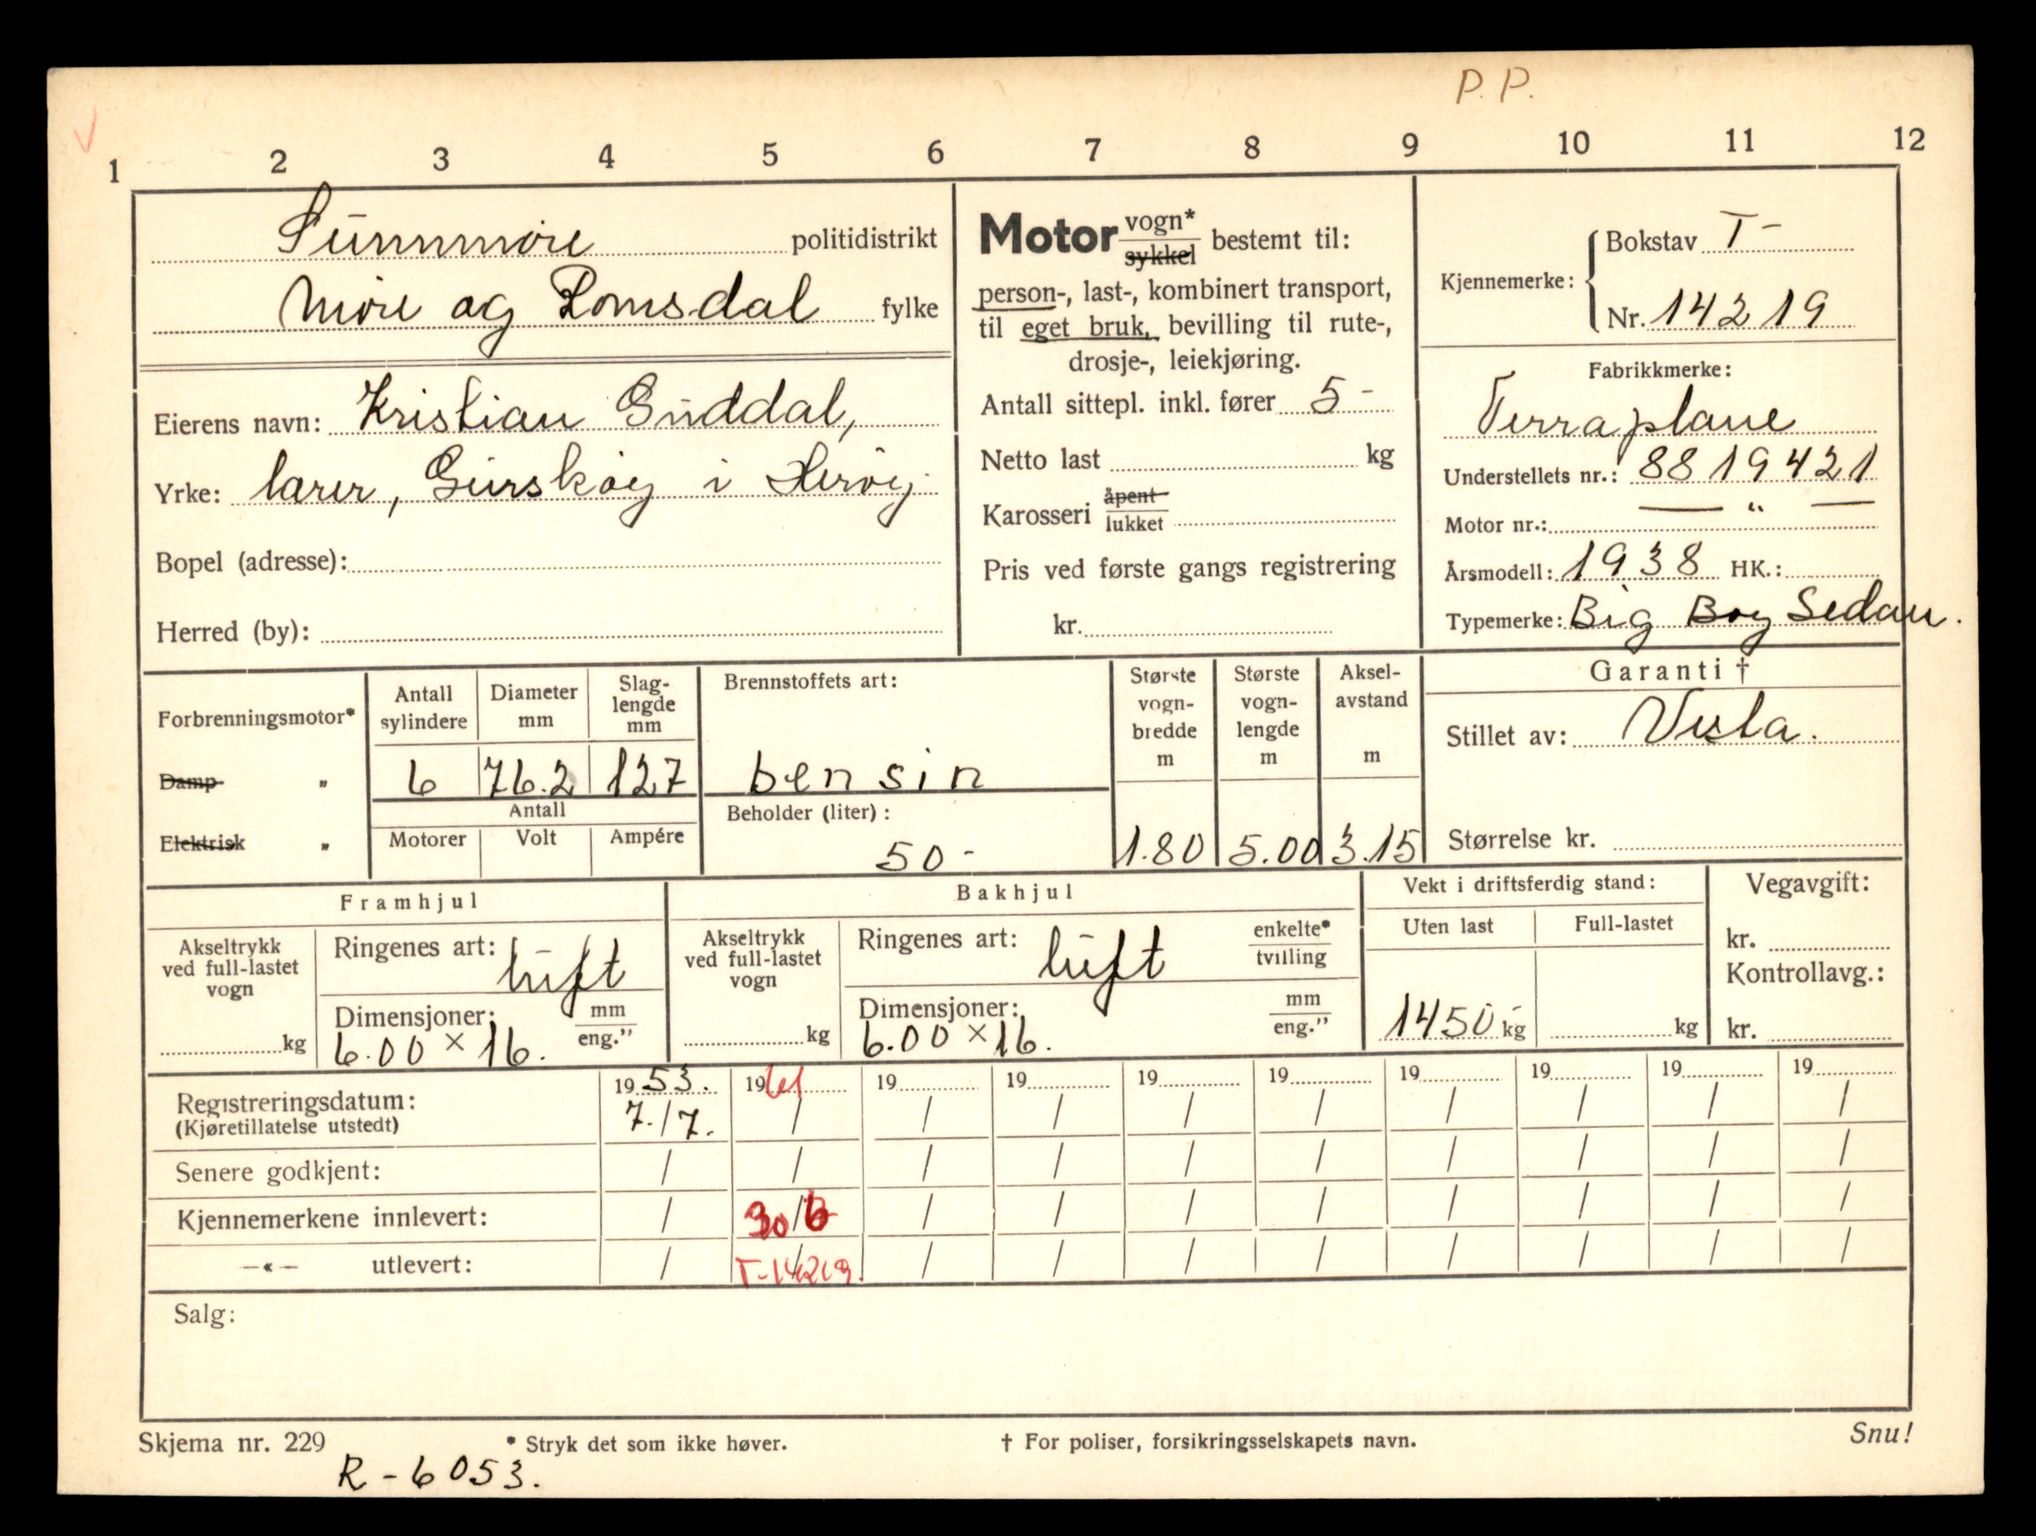 P. P.
1 2 3 4 5 6 7 8 9 10 11 12
Sunnmøre politidistrikt
Møre og Romsdal fylke
Eierens navn: Kristian Guddal,
Yrke: lærer, Gurskøy i Herøy
Bopel (adresse):
Herred (by):
Motor vogn* sykkel bestemt til:
person-, last-, kombinert transport,
til eget bruk, bevilling til rute-,
drosje-, leiekjøring.
Antall sittepl. inkl. fører 5 -
Netto last kg
Karosseri åpent lukket
Pris ved første gangs registrering
kr.
Kjennemerke: Bokstav T-
Nr. 14219
Fabrikkmerke:
Terraplane
Understellets nr.: 8819421
Motor nr.: — " —
Årsmodell: 1938 HK.:
Typemerke: Big Boy Sedan.
Forbrenningsmotor*
Damp "
Elektrisk "
Antall sylindere Diameter mm Slag-lengde mm
6 76.2 127
Antall
Motorer Volt Ampére
Brennstoffets art:
bensin
Beholder (liter):
50 -
Største vogn-bredde m Største vogn-lengde m Aksel-avstand m
1.80 5.00 3.15
Garanti †
Stillet av: Vesta.
Størrelse kr.
Framhjul
Akseltrykk ved full-lastet vogn
kg
Ringenes art: luft
Dimensjoner: mm eng."
6.00 × 16.
Bakhjul
Akseltrykk ved full-lastet vogn
kg
Ringenes art: luft enkelte* tvilling
Dimensjoner: mm eng."
6.00 × 16.
Vekt i driftsferdig stand:
Uten last Full-lastet
1450 kg kg
Vegavgift:
kr.
Kontrollavg.:
kr.
19 53. 19 61 19 19 19 19 19 19 19 19
Registreringsdatum: 7./7. / / / / / / / / /
(Kjøretillatelse utstedt)
Senere godkjent: / / / / / / / / / /
Kjennemerkene innlevert: / 30/6 / / / / / / / /
—«— utlevert: / T-14219. / / / / / / / /
Salg:
Skjema nr. 229 * Stryk det som ikke høver. † For poliser, forsikringsselskapets navn. Snu!
R - 6053.